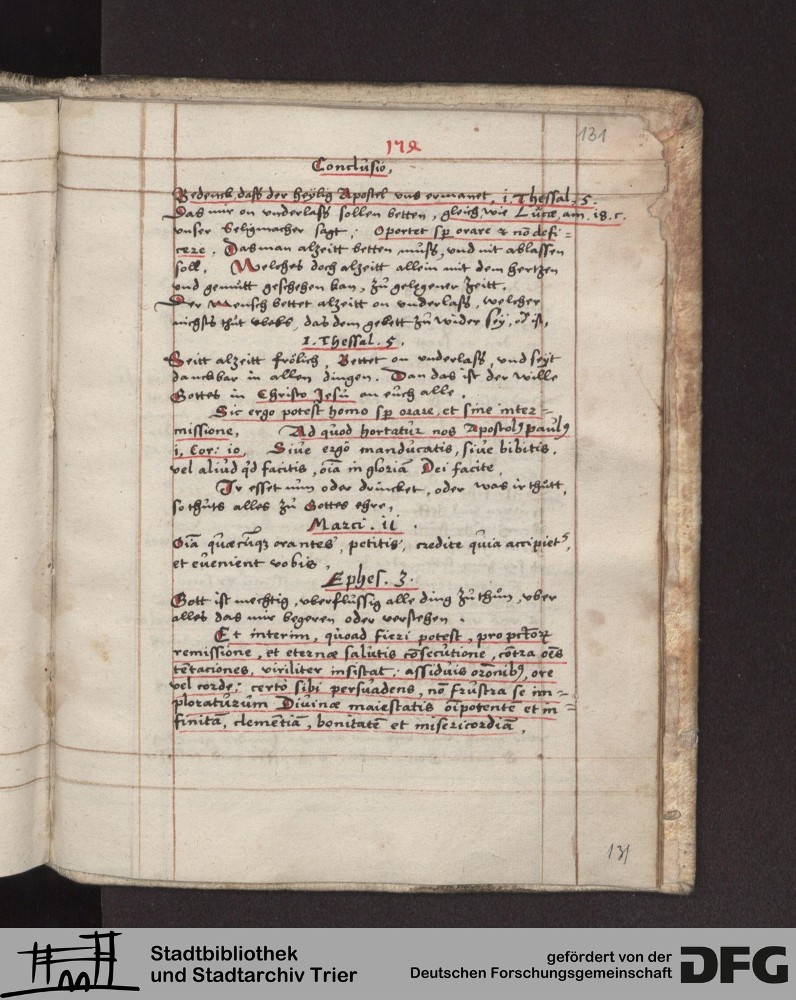 131
Conclusio,
Bedenck dass der heÿlig Apostel uns ermanet, i. Thessal. 5.
Das mir on underlass sollen betten, gleich wie Lucæ, am. 18. c.
unser Seligmacher sagt: Oportet sp orare & nō defi-
cere. Das man alzeitt betten muss, und nit ablassen
soll. Welches doch alzeitt allein mit dem hertzen
und gemütt geschehen kan, zů gelegener zeitt.
Der Mensch bettet alzeitt on underlass, welcher
nichsts thut ubels, das dem gebett zů wider seÿ, od ist,
1. Thessal. 5.
Seitt alzeitt frölich, Bettet on underlass, und seÿt
danckbar in allen dingen. Dan das ist der wille
Gottes in Christo Jesu an euch alle.
Sic ergo potest homo sp orare, et sine inter-
missione. Ad quod hortatur nos Apostol9 Paul9
i. Cor: io. Siue ergo manducatis, siue bibitis,
vel aliud qd facitis, oīa in gloriā Dei facite,
Ir esset nun oder drincket, oder was ir thutt,
so thuts alles zů Gottes ehre,
Marci. ii.
Oīa quæcūqz orantes, petitis, credite quia accipiet5,
et euenient vobis,
Ephes. 3.
Gott ist mechtig, uberflussig alle ding zů thun, uber
alles das mir begeren oder verstehen.
Et interim, quoad fieri potest, pro pctorꝝ
remissione, et eternæ salutis cōsecutione, cōtra oēs
tētaciones, viriliter insistat: assiduis orōnib9, ore
vel corde: certo sibi persuadens, nō frustra se im-
ploraturum Diuinæ maiestatis oīpotentē et in
finitā, clementiā, bonitatē et misericordiā,
131
Stadtbibliothek
und Stadtarchiv Trier
gefördert von der
Deutschen Forschungsgemeinschaft
DFG